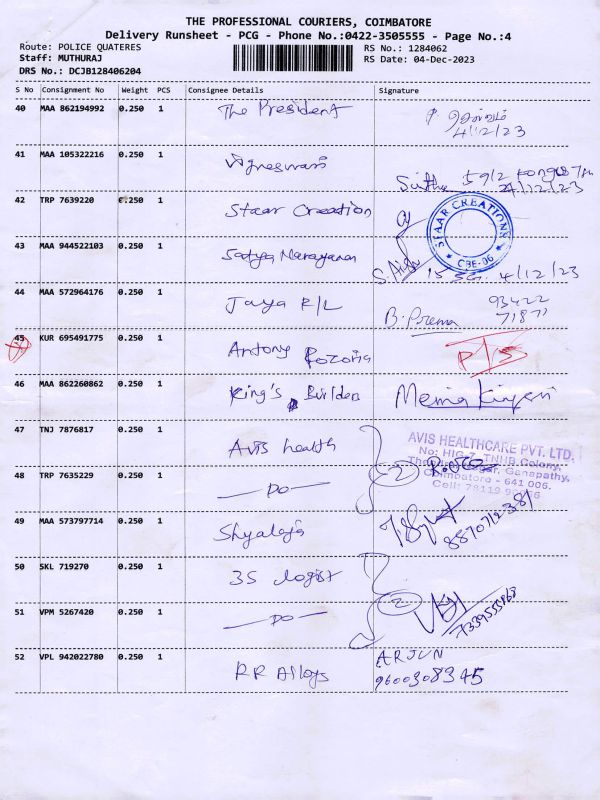 THE PROFESSIONAL COURIERS, COIMBATORE
Delivery Runsheet - PCG - Phone No.:0422-3505555 - Page No.:4
Route: POLICE QUATERES
RS No.: 1284062
Staff: MUTHURAJ
RS Date: 04-Dec-2023
DRS No.: DCJB128406204
S No Consignment No Weight PCS Consignee Details Signature
40 MAA 862194992 0.250 1 The President
4/12/23
41 MAA 105322216 0.250 1 Vigneswari
4/12/23
42 TRP 7639220 0.250 1 Staar Creation
STAAR CREATIONS CBE-06
43 MAA 944522103 0.250 1 Satya Narayanan
4/12/23
44 MAA 572964176 0.250 1 Jaya R/L B. Prema 93422
71871
45 KUR 695491775 0.250 1 Antony Rozoria
46 MAA 862260862 0.250 1 King's Builders
47 TNJ 7876817 0.250 1 Avis health
AVIS HEALTHCARE PVT. LTD.
No: HIG-7, TNHB Colony,
Nagar, Ganapathy,
Coimbatore - 641 006.
Cell: 78119
48 TRP 7635229 0.250 1 — Do — 2
49 MAA 573797714 0.250 1 Shyalaja
50 SKL 719270 0.250 1 3S logist
51 VPM 5267420 0.250 1 — Do — 2
52 VPL 942022780 0.250 1 RR Alloys ARJUN
9600308345